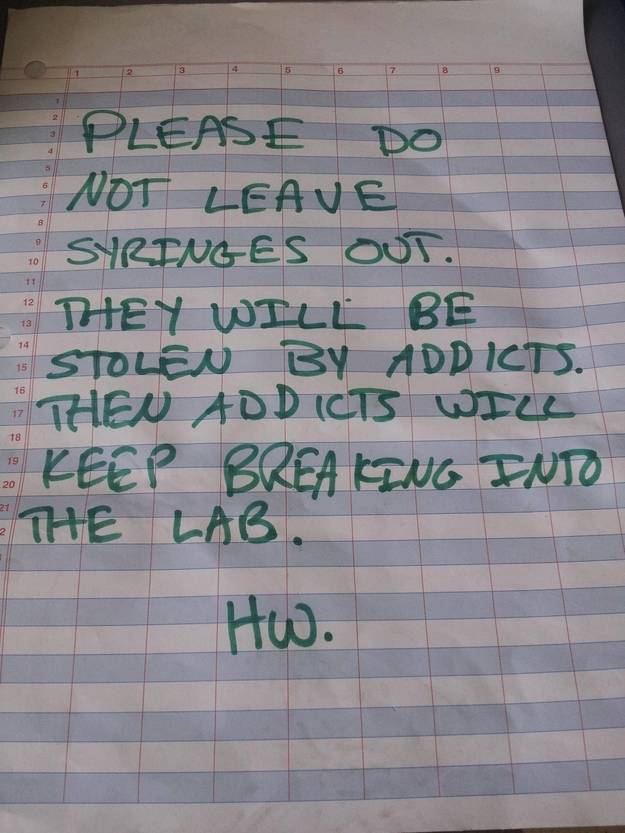 1 2 3 4 5 6 7 8 9
1
2
3
4
5
6
7
8
9
10
11
12
13
14
15
16
17
18
19
20
21
2
PLEASE DO
NOT LEAVE
SYRINGES OUT.
THEY WILL BE
STOLEN BY ADDICTS.
THEN ADDICTS WILL
KEEP BREAKING INTO
THE LAB.
HW.